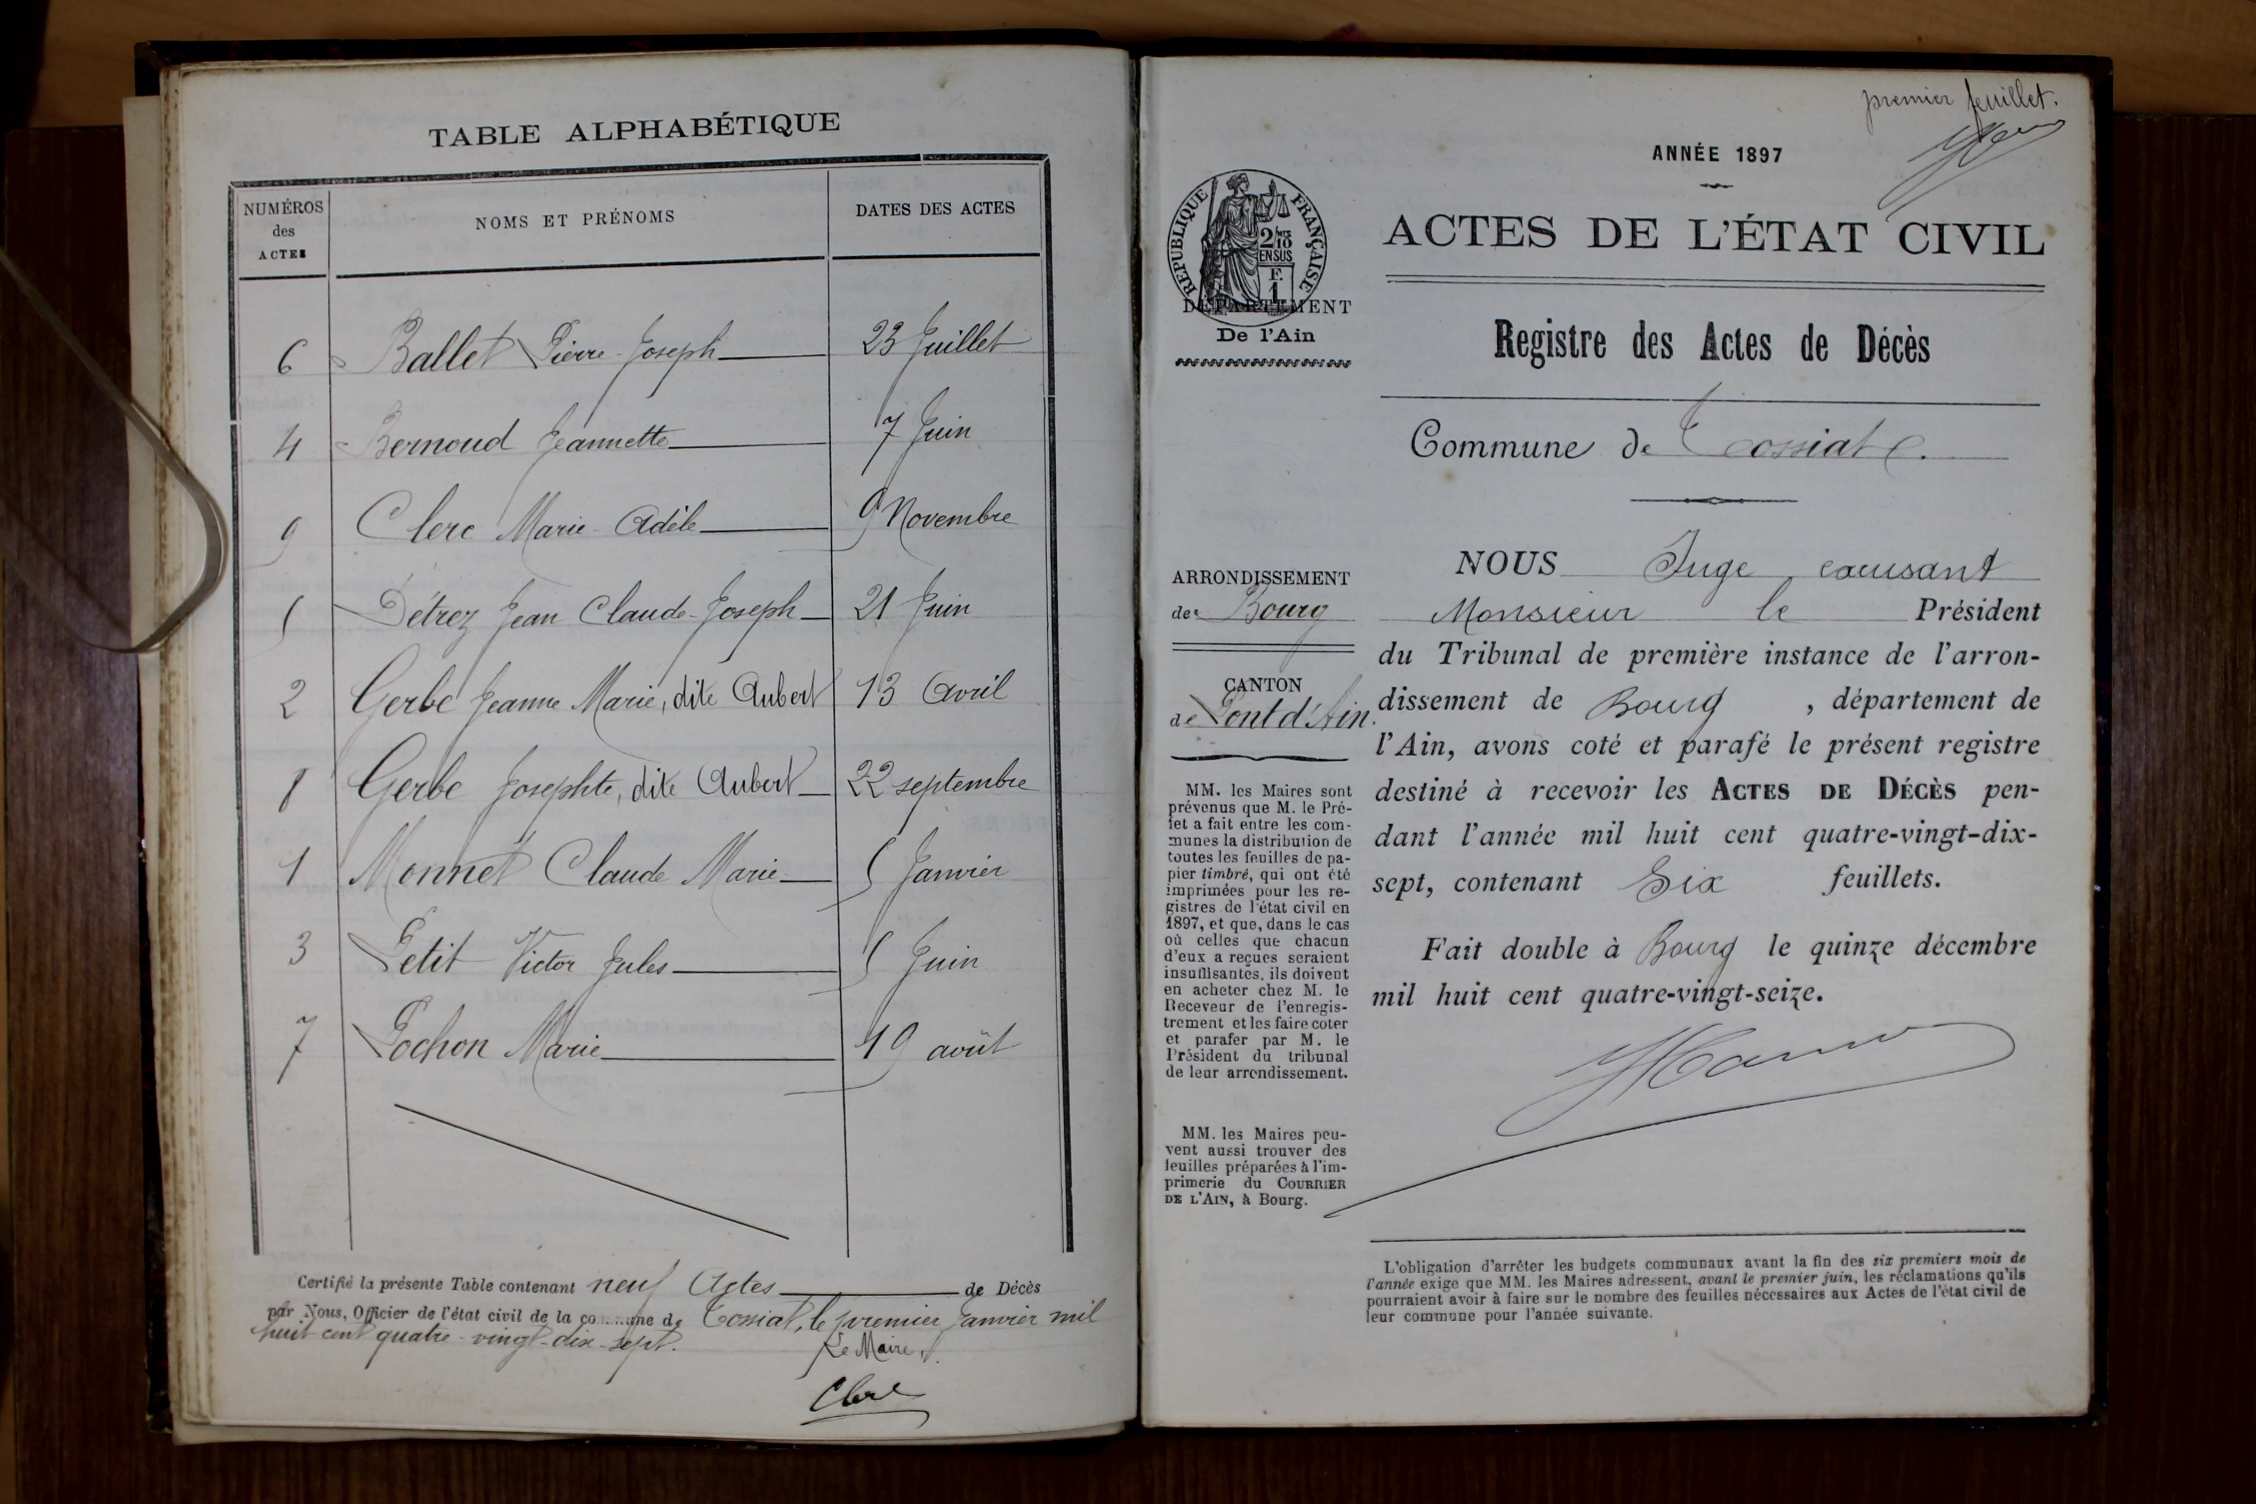 TABLE ALPHABÉTIQUE
NUMÉROS
des
ACTES
NOMS ET PRÉNOMS
DATES DES ACTES
6 Ballet Pierre-Joseph 23 Juillet
4 Bernoud Jeannette 7 Juin
9 Clerc Marie-Adèle 9 Novembre
5 Détrez Jean Claude-Joseph 21 Juin
2 Gerbe Jeanne Marie, dite Aubert 13 Avril
8 Gerbe Josephte, dite Aubert 22 septembre
1 Monnet Claude Marie 5 Janvier
3 Petit Victor Jules 5 Juin
7 Pochon Marie 19 août
Certifié la présente Table contenant neuf Actes de Décès
par Nous, Officier de l'état civil de la commune de Tossiat, le premier Janvier mil
huit cent quatre-vingt-dix-sept.
Le Maire,
Clerc
premier feuillet.
ANNÉE 1897
RÉPUBLIQUE FRANÇAISE
2/10
EN SUS
F.
1
ACTES DE L'ÉTAT CIVIL
DÉPARTEMENT
De l'Ain
Registre des Actes de Décès
Commune de Tossiat
ARRONDISSEMENT
de Bourg
CANTON
de Pont d'Ain.
MM. les Maires sont
prévenus que M. le Pré-
fet a fait entre les com-
munes la distribution de
toutes les feuilles de pa-
pier timbré, qui ont été
imprimées pour les re-
gistres de l'état civil en
1897, et que, dans le cas
où celles que chacun
d'eux a reçues seraient
insuffisantes, ils doivent
en acheter chez M. le
Receveur de l'enregis-
trement et les faire coter
et parafer par M. le
Président du tribunal
de leur arrondissement.
MM. les Maires peu-
vent aussi trouver des
feuilles préparées à l'im-
primerie du COURRIER
DE L'AIN, à Bourg.
NOUS Juge excusant
Monsieur le Président
du Tribunal de première instance de l'arron-
dissement de Bourg, département de
l'Ain, avons coté et parafé le présent registre
destiné à recevoir les ACTES DE DÉCÈS pen-
dant l'année mil huit cent quatre-vingt-dix-
sept, contenant Six feuillets.
Fait double à Bourg le quinze décembre
mil huit cent quatre-vingt-seize.
L'obligation d'arrêter les budgets communaux avant la fin des six premiers mois de
l'année exige que MM. les Maires adressent, avant le premier juin, les réclamations qu'ils
pourraient avoir à faire sur le nombre des feuilles nécessaires aux Actes de l'état civil de
leur commune pour l'année suivante.